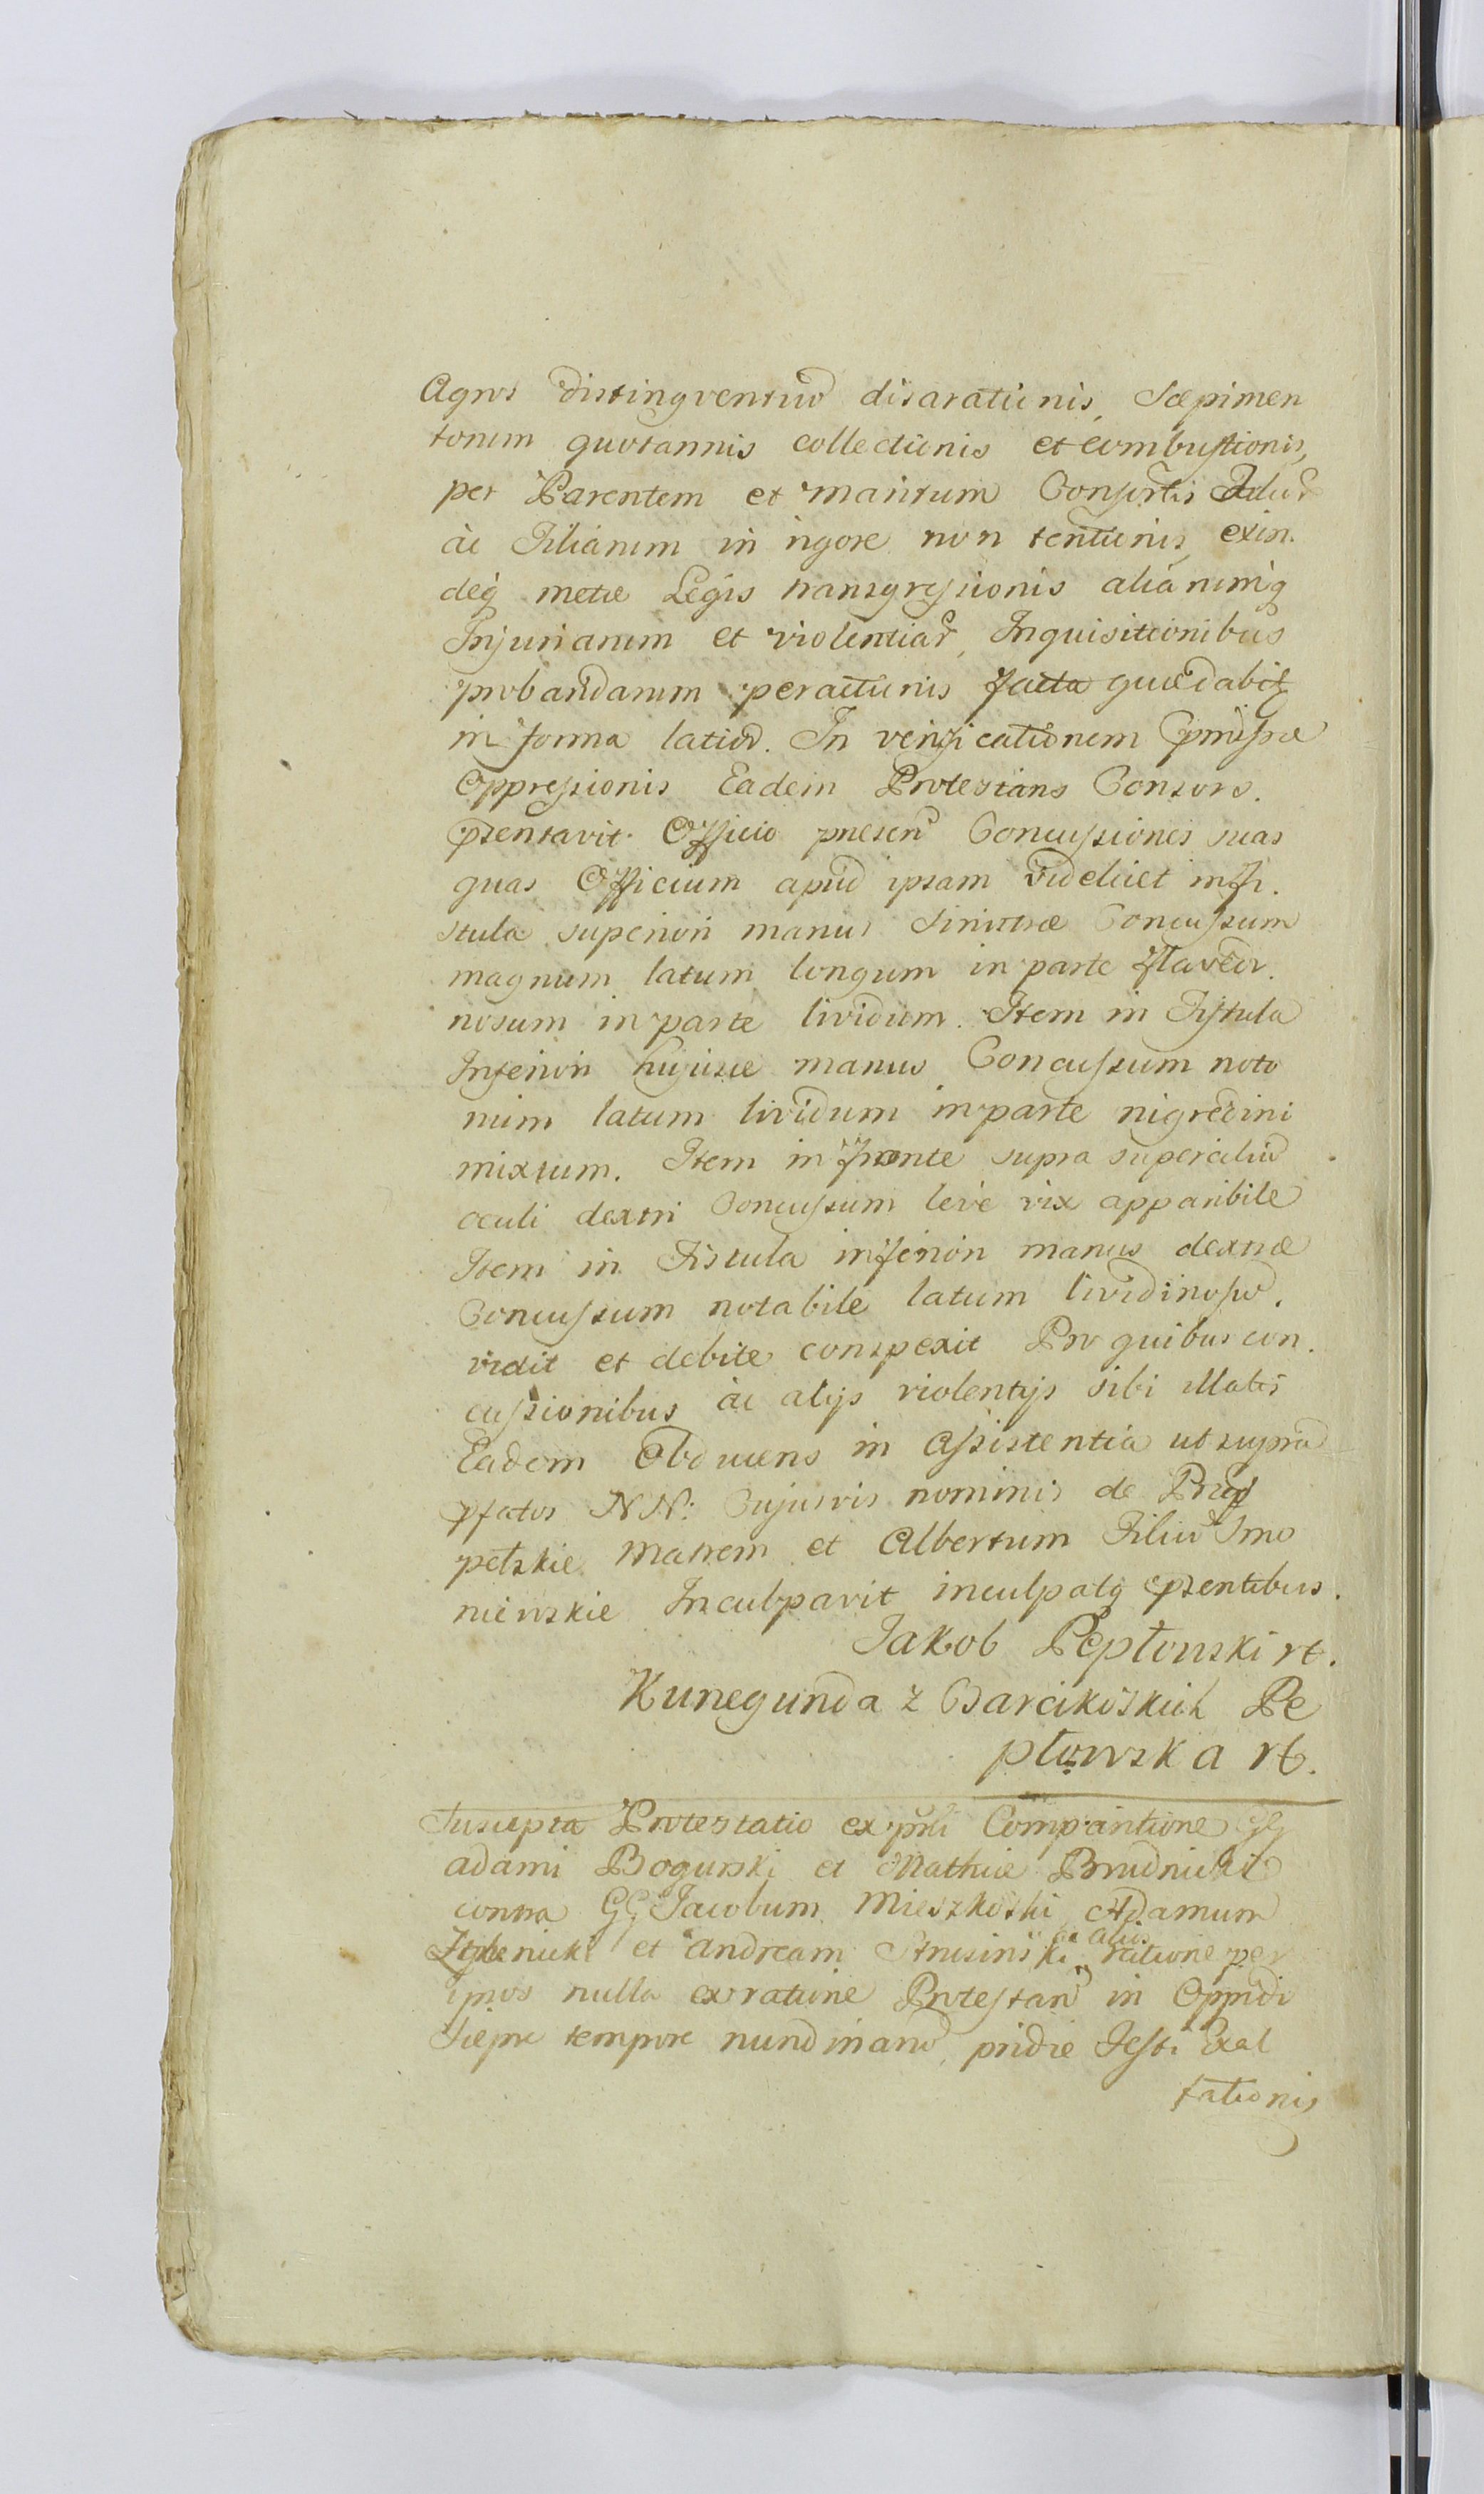 Agros distingventiu disarationis, Sæpimen
torum quotannis collectionis et combustionis,
per Parentem et maritum Consortis
ac Filiarum in rigore non tentionis, exin.
deq metæ Legis transgressionis aliarumq
Injuriarum et violentiar, Inquisitionibus
probandarum peractionis facta quædabit
in forma latiori. In verificationem pmissæ
Oppressionis Eadem Protestans Consors.
pzentavit Officio præsen Concussiones suas
quas Officium apud ipsam videlicet in fi.
stula superiori manus Sinistræ Concussum
magnum latum longum in parte flavedi.
nosum in parte lividum. Item in Fistula
Inferiori hujusce manus Concussum noto
rium latum lividum in parte nigredini
mixtum. Item in fronte supra superciliu
oculi dextri Concussum leve vix apparibile
Item in Fistula inferiori manus dextræ
Concussum notabile latum lividinosu.
vidit et debite conspexit Pro quibus con.
cussionibus ac alijs violentijs sibi illatis
Eadem Obducens in Assistentia ut supra
pfatos NN: Cujusvis nominis de
petzkie Matrem et Albertum Filiu Smo
niewskie Inculpavit inculpatq pzentibus.
Jakob Pepłonski rt.
Kunegunda z Barcikoskich Pe
płowska rt.
Suscepta Protestatio ex pśli Comparitione GG
Adami Bogurski et Mathiæ Brudnicki
contra GG Jacobum Mieszkoski Adamum
et Andream Strusinski ac alios ratione per
ipsos nulla ex ratione Protestan in Oppido
Sieprc tempore nundinaru, pridie Festi Exal
tationis